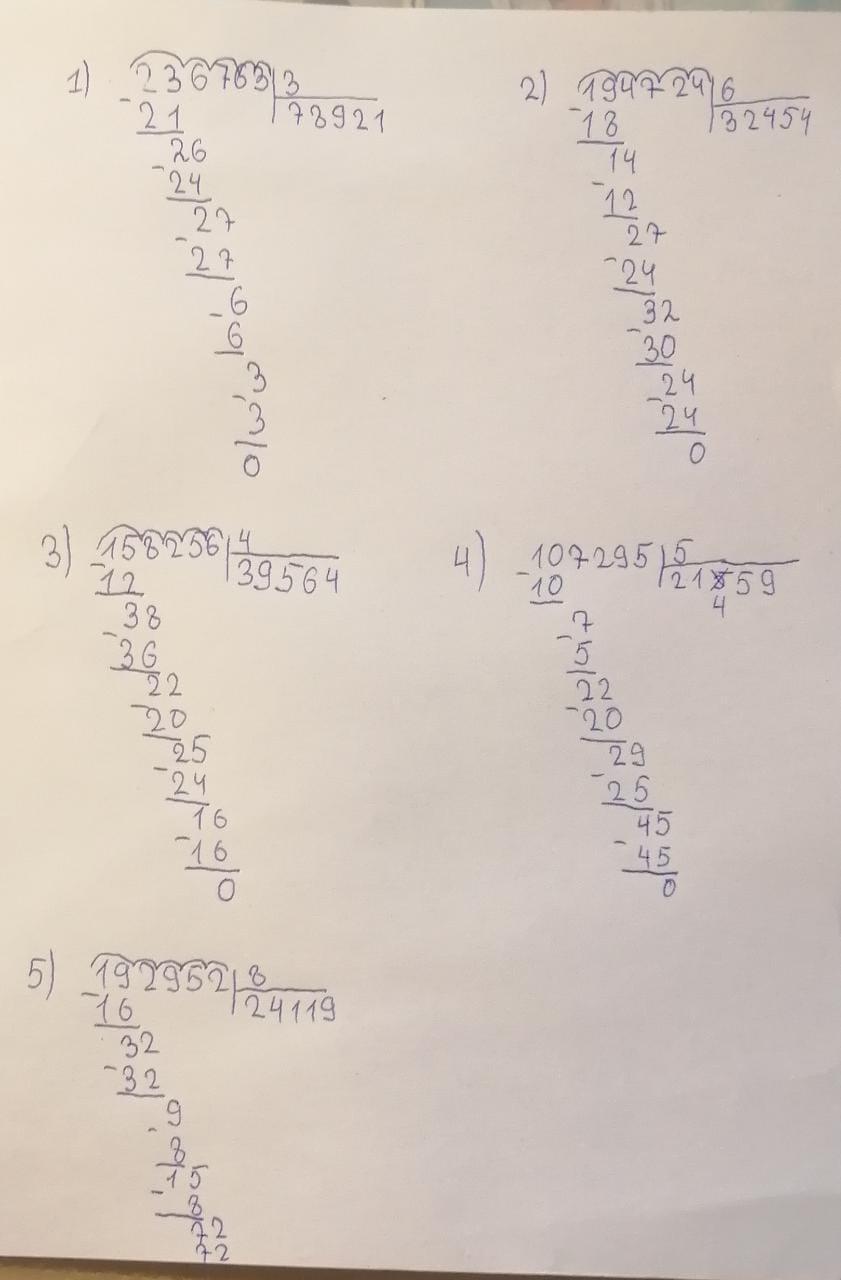 1) 236763 3
- 21 78921
26
- 24
27
- 27
6
- 6
3
- 3
0
2) 194724 6
- 18 32454
14
- 12
27
- 24
32
- 30
24
- 24
0
3) 158256 4
- 12 39564
38
- 36
22
- 20
25
- 24
16
- 16
0
4) 107295 5
- 10 21459
7
- 5
22
- 20
29
- 25
45
- 45
0
5) 192952 8
- 16 24119
32
- 32
9
- 8
15
- 8
72
72